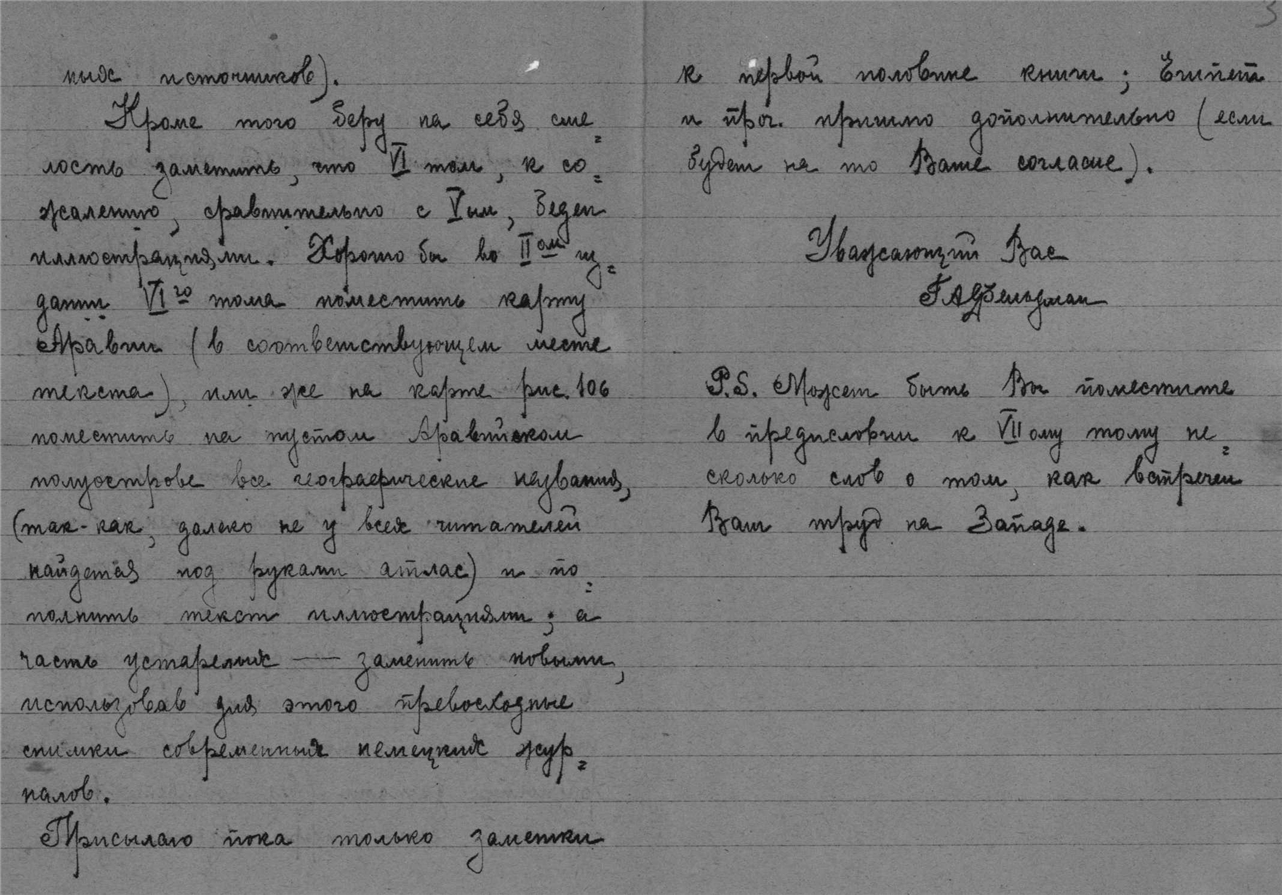 ных источников).
Кроме того беру на себя сме=
лость заметить, что VI том, к со=
жалению, сравнительно с Vым, беден
иллюстрациями. Хорошо бы во IIом из=
дании VIго тома поместить карту
Аравии (в соответствующем месте
текста), или же на карте рис. 106
поместить на пустом Аравийском
полуострове все географические названия,
(так-как, далеко не у всех читателей
найдется под руками атлас) и по=
полнить текст иллюстрациями; а
часть устарелых — заменить новыми,
использовав для этого превосходные
снимки современных немецких жур=
налов.
Присылаю пока только заметки
3
к первой половине книги; Египет
и проч. пришлю дополнительно (если
будет на то Ваше согласие).
Уважающий Вас
P.S. Может быть Вы поместите
в предисловии к VIIому тому не=
сколько слов о том, как встречен
Ваш труд на Западе.